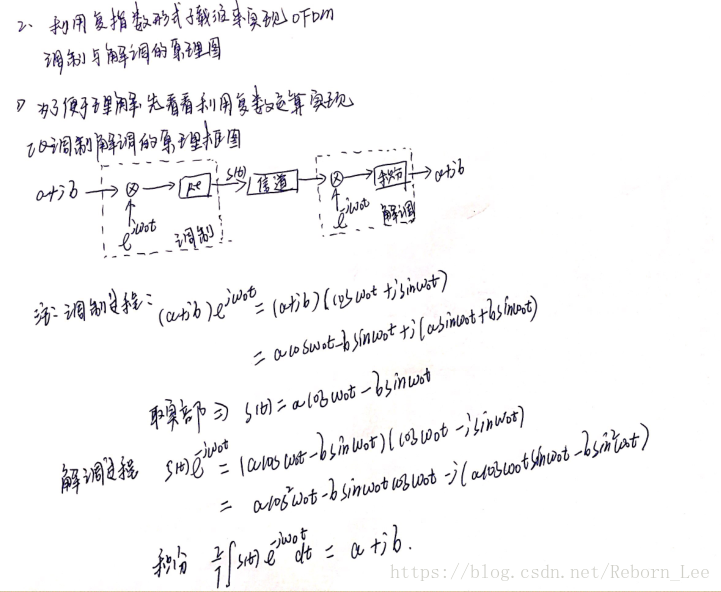 2、利用复指数形式子载波来实现OFDM
调制与解调的原理图
1) 为了便于理解,先看看利用复数运算实现
IQ调制解调的原理框图
a+jb → ⊗ → Re → s(t) → 信道 → ⊗ → 积分 → a+jb
e^{jw₀t} 调制 e^{-jw₀t} 解调
注:调制过程: (a+jb)e^{jw₀t} = (a+jb)(cosw₀t+jsinw₀t)
= acosw₀t-bsinw₀t+j(asinw₀t+bsinw₀t)
取实部 ⇒ s(t)=acosw₀t-bsinw₀t
解调过程 s(t)e^{-jw₀t} = (acosw₀t-bsinw₀t)(cosw₀t-jsinw₀t)
= acos²w₀t-bsinw₀tcosw₀t-j(acosw₀tsinw₀t-bsin²w₀t)
积分 2/T∫s(t)e^{-jw₀t}dt = a+jb.
https://blog.csdn.net/Reborn_Lee